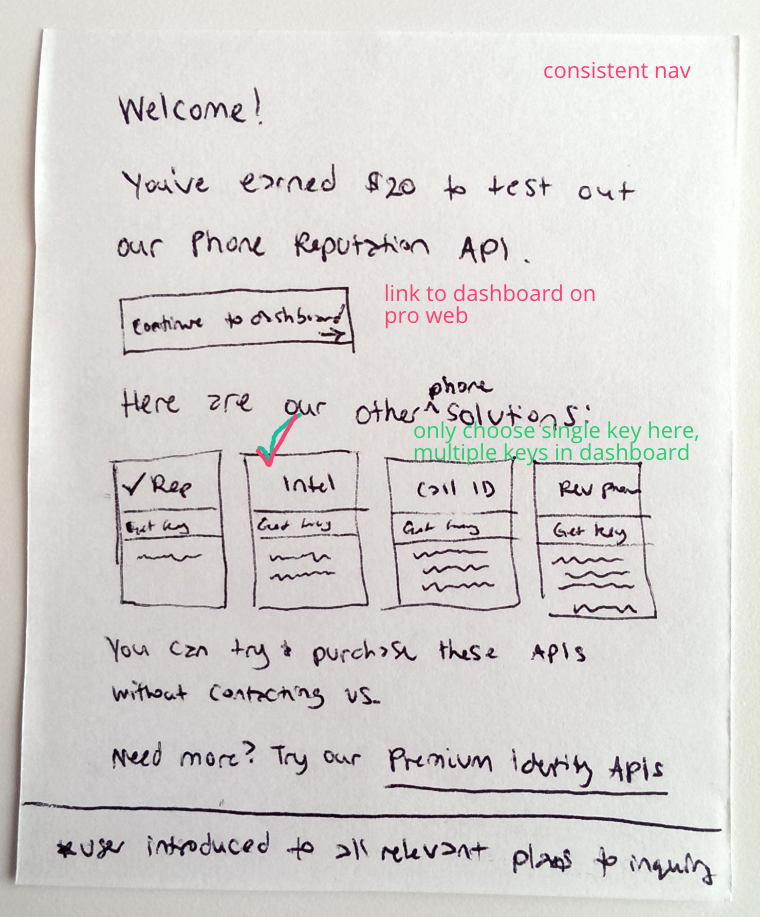 consistent nav
Welcome!
You've earned $20 to test out
our Phone Reputation API.
Continue to dashboard
→
link to dashboard on
pro web
phone
Here are our other ^ solutions:
only choose single key here,
multiple keys in dashboard
✓ Rep
Intel
Call ID
Rev phone
Get key
Get key
Get key
Get key
You can try & purchase these APIs
without contacting us.
Need more? Try our Premium Identity APIs
*user introduced to all relevant plans to inquiry